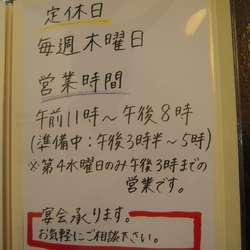 定休日
毎週木曜日
営業時間
午前11時～午後8時
(準備中：午後3時半～5時)
※第4水曜日のみ午後3時までの
営業です。
宴会承ります。
お気軽にご相談下さい。